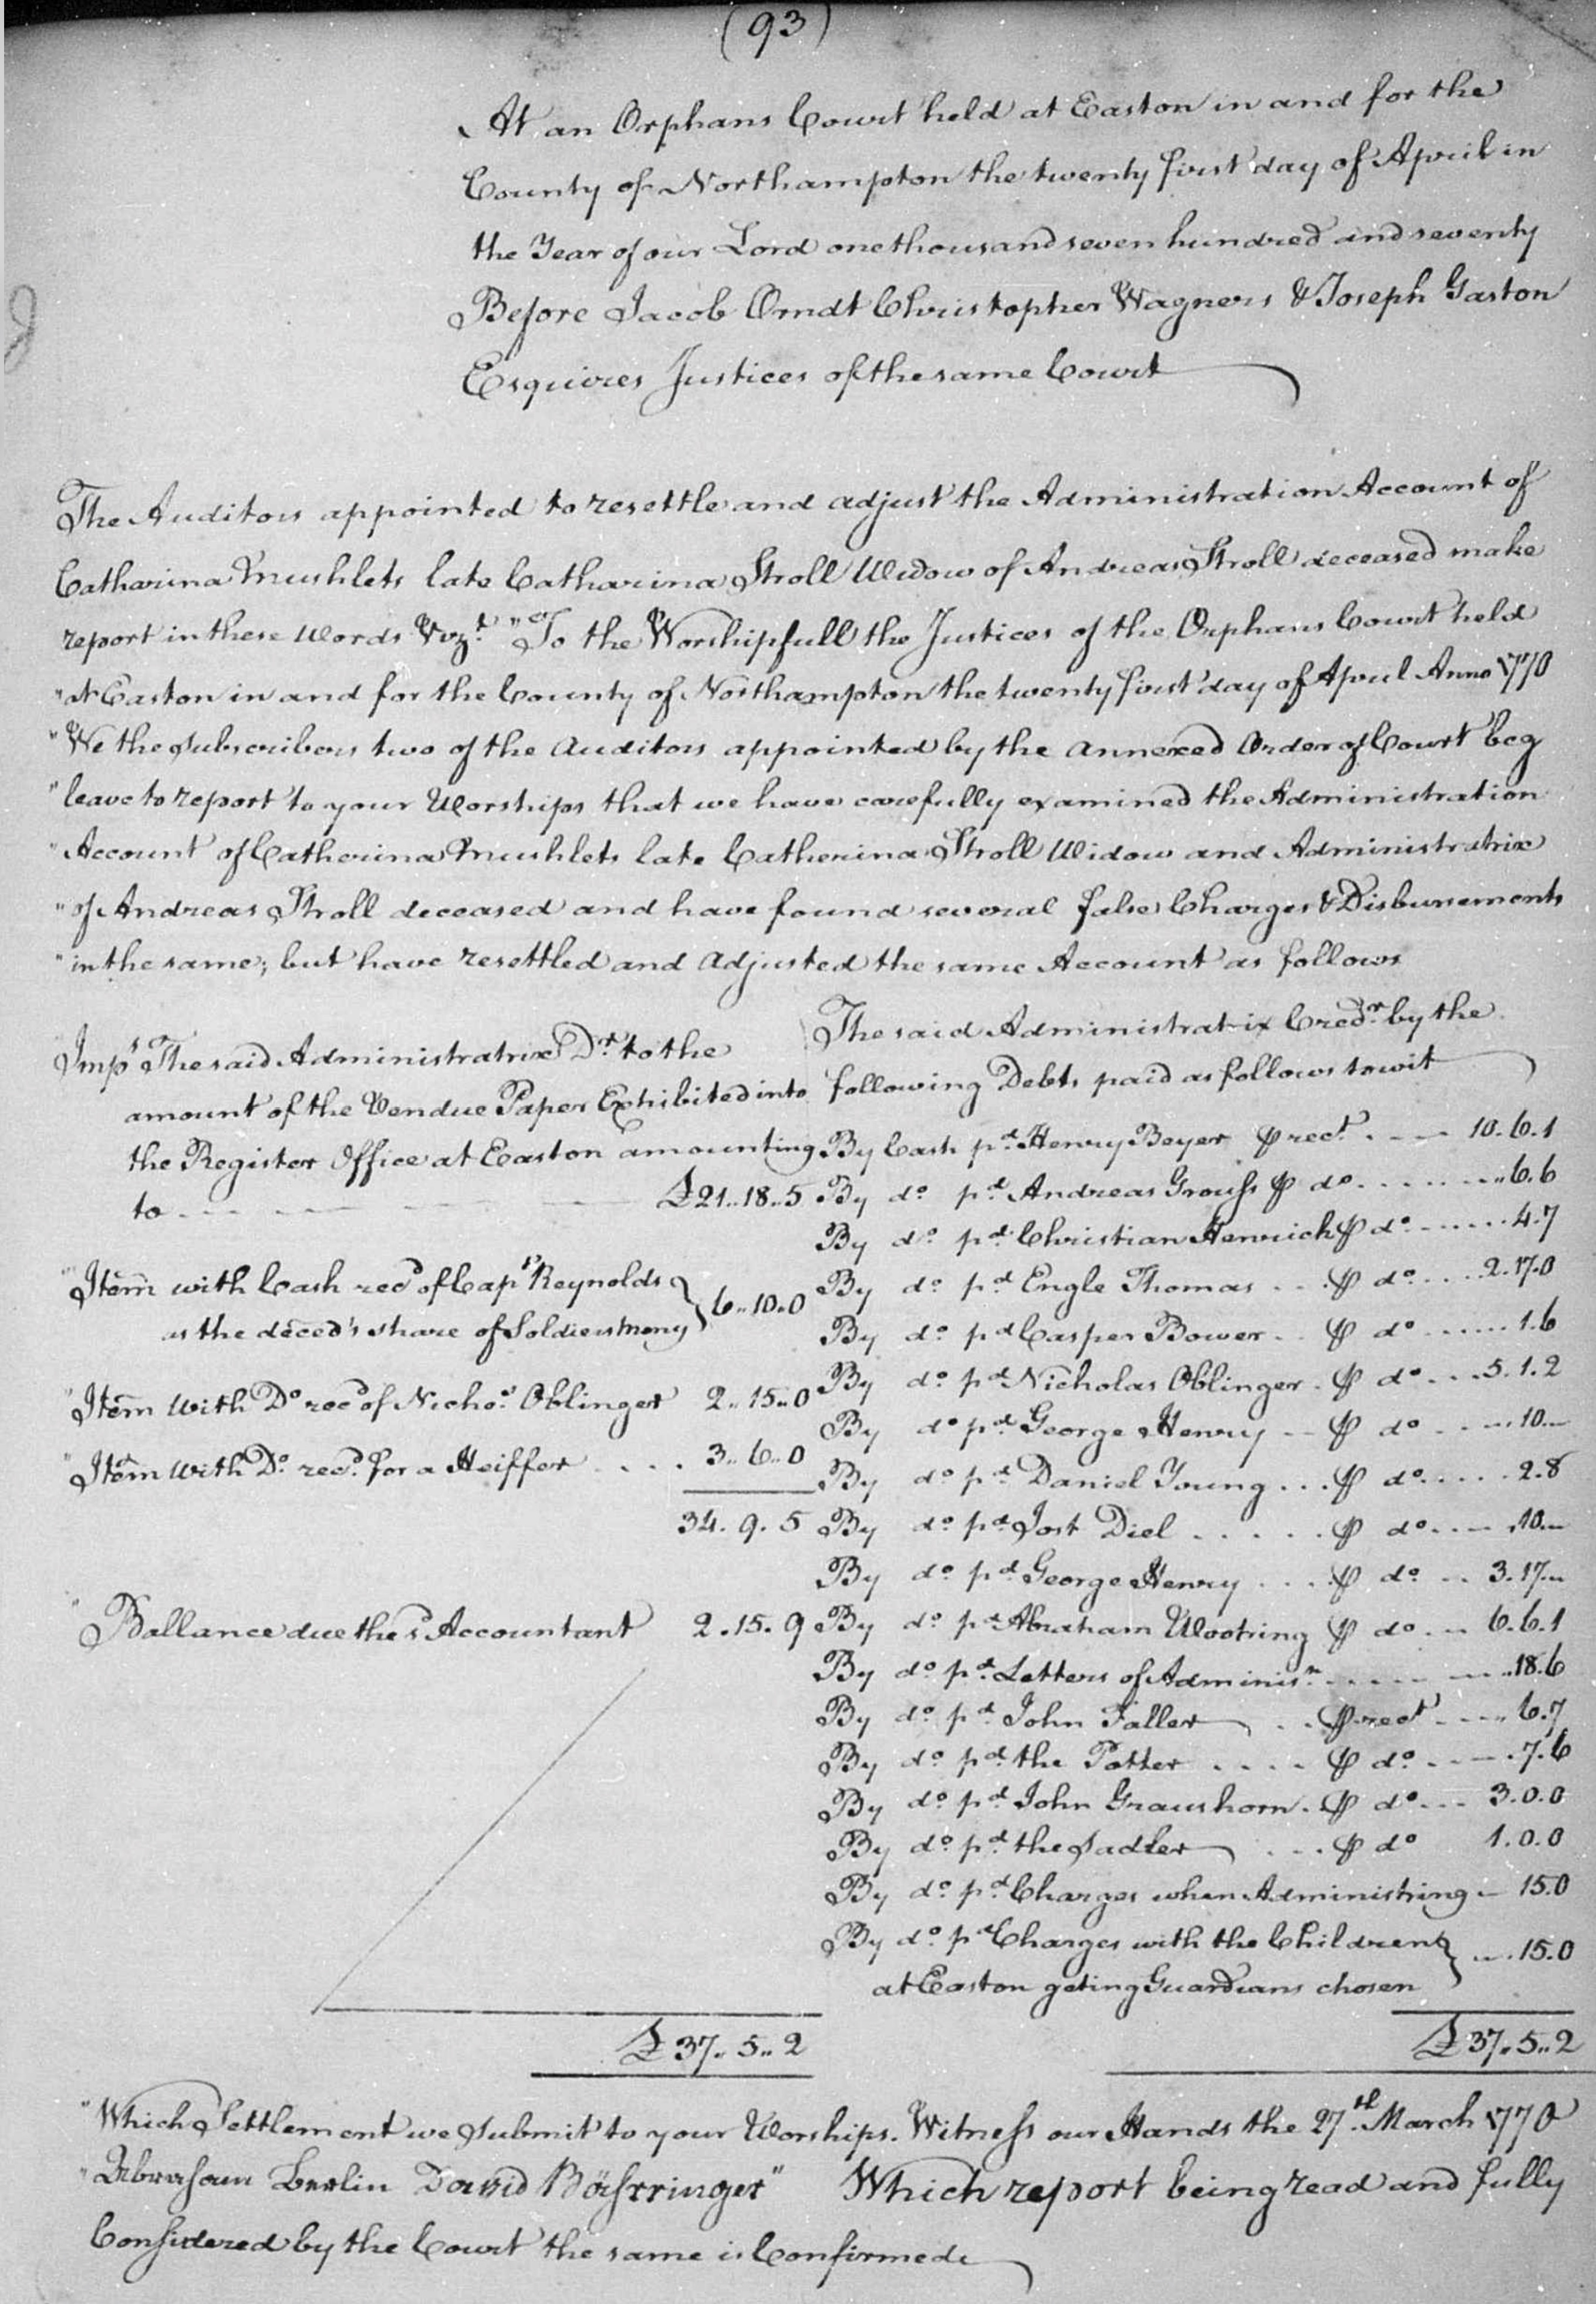 (93)
At an Orphans Court held at Easton in and for the
County of Northampton the twenty first day of April in
the Year of our Lord one thousand seven hundred and seventy
Before Jacob Orndt Christopher Wagners & Joseph Gaston
Esquires Justices of the same Court
The Auditors appointed to resettle and adjust the Administration Account of
Catharina Mushlets late Catharina Stroll Widow of Andreas Stroll deceased make
report in these Words Vizt. "To the Worshipfull the Justices of the Orphans Court held
"at Easton in and for the County of Northampton the twenty first day of April Anno 1770
"We the Subscribers two of the Auditors appointed by the annexed Order of Court beg
"leave to report to your Worships that we have carefully examined the Administration
"Account of Catherina Mushlets late Catherina Stroll Widow and Administratrix
"of Andreas Stroll deceased and have found several false Charges & Disbursements
"in the same; but have resettled and adjusted the same Account as follows
Imps The said Administratrix Dr. to the
amount of the Vendue Paper Exhibited into
the Register Office at Easton amounting
to £21..18..5
"Item with Cash recd of Capt Reynolds
as the deced's share of Soldiers mony } 6..10..0
"Item with Do recd of Nichos. Oblinger 2..15..0
"Item with Do. recd. for a Heiffer .... 3..6..0
34.9.5
"Ballance due the sd Accountant 2.15.9
£37..5..2
The said Administratrix Credr. by the
following Debts paid as follows to wit
By Cash pd. Henry Beyer ⅌ rect. 10.6.1
By do pd. Andreas Grouss ⅌ do ..6.6
By do. pd. Christian Henrich ⅌ do. 4.7
By do. pd. Engle Thomas ⅌ do. 2.17.0
By do. pd Casper Bower ⅌ do 1.6
By do. pd Nicholas Oblinger ⅌ do 5.1.2
By do pd. George Henry ⅌ do 10..
By do. pd. Daniel Young ⅌ do. 2.8
By do. pd. Jost Diel ⅌ do. 10..
By do. pd. George Henry ⅌ do. 3.17..
By do. pd. Abraham Wootring ⅌ do. 6.6.1
By do. pd. Letters of Adminisn. ..18.6
By do. pd. John Faller ⅌ rect 6.7
By do. pd. the Potter .... ⅌ do. 7.6
By do. pd. John Graushorn. ⅌ do 3.0.0
By do. pd. the Sadler ... ⅌ do 1.0.0
By do. pd. Charges when Administring 15.0
By do. pd Charges with the Children
at Easton geting Guardians chosen } 15.0
£37..5..2
"Which Settlement we Submit to your Worships. Witness our Hands the 27th. March 1770
"Abraham Berlin David Bähringer" Which report being read and fully
Considered by the Court the same is Confirmed